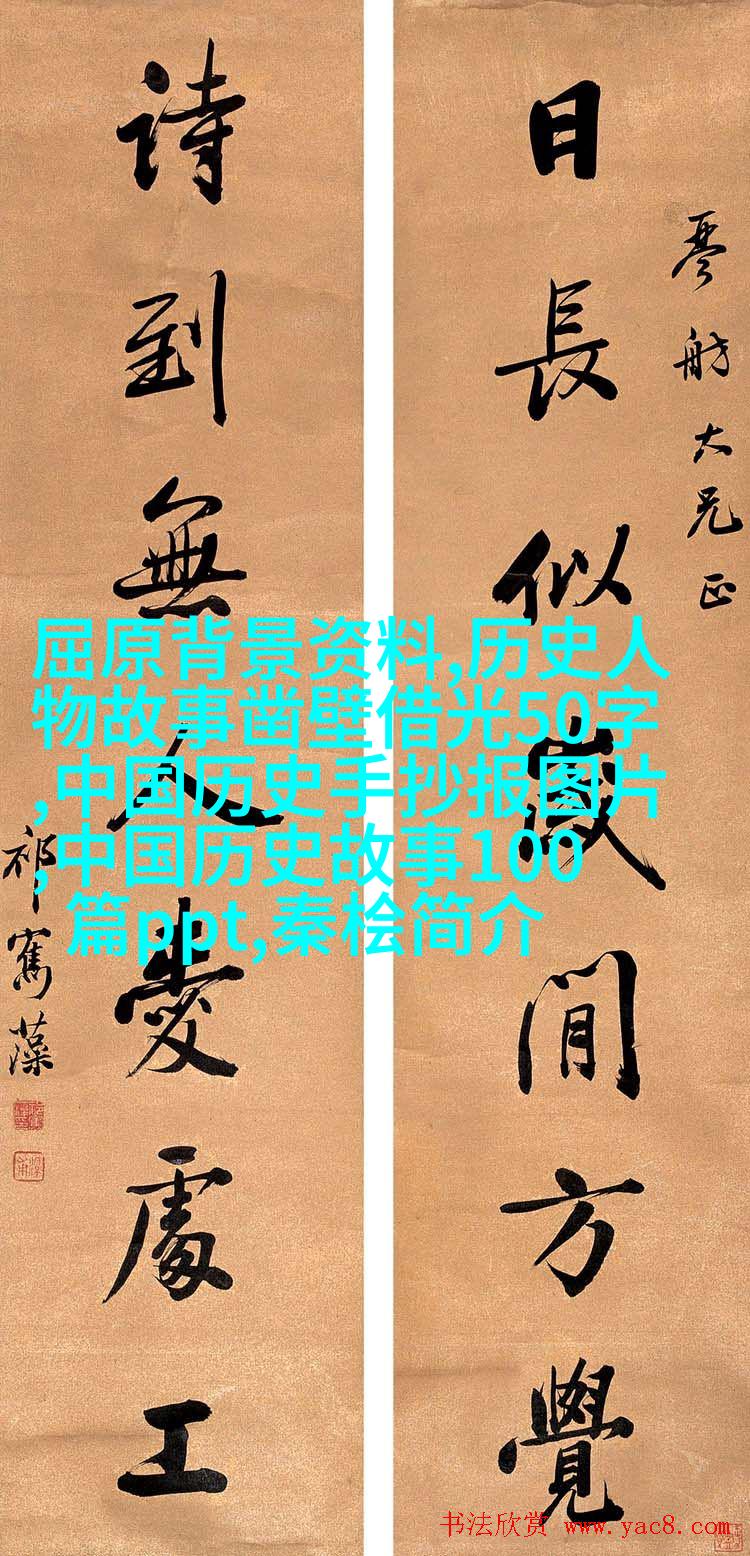 琴舫大兄正
日長似歲閒方覺
詩到無人愛處工
祁寯藻
屈原背景资料,历史人
物故事凿壁借光50字
,中国历史手抄报图片
,中国历史故事100
篇ppt,秦桧简介
书法欣赏 www.yac8.com